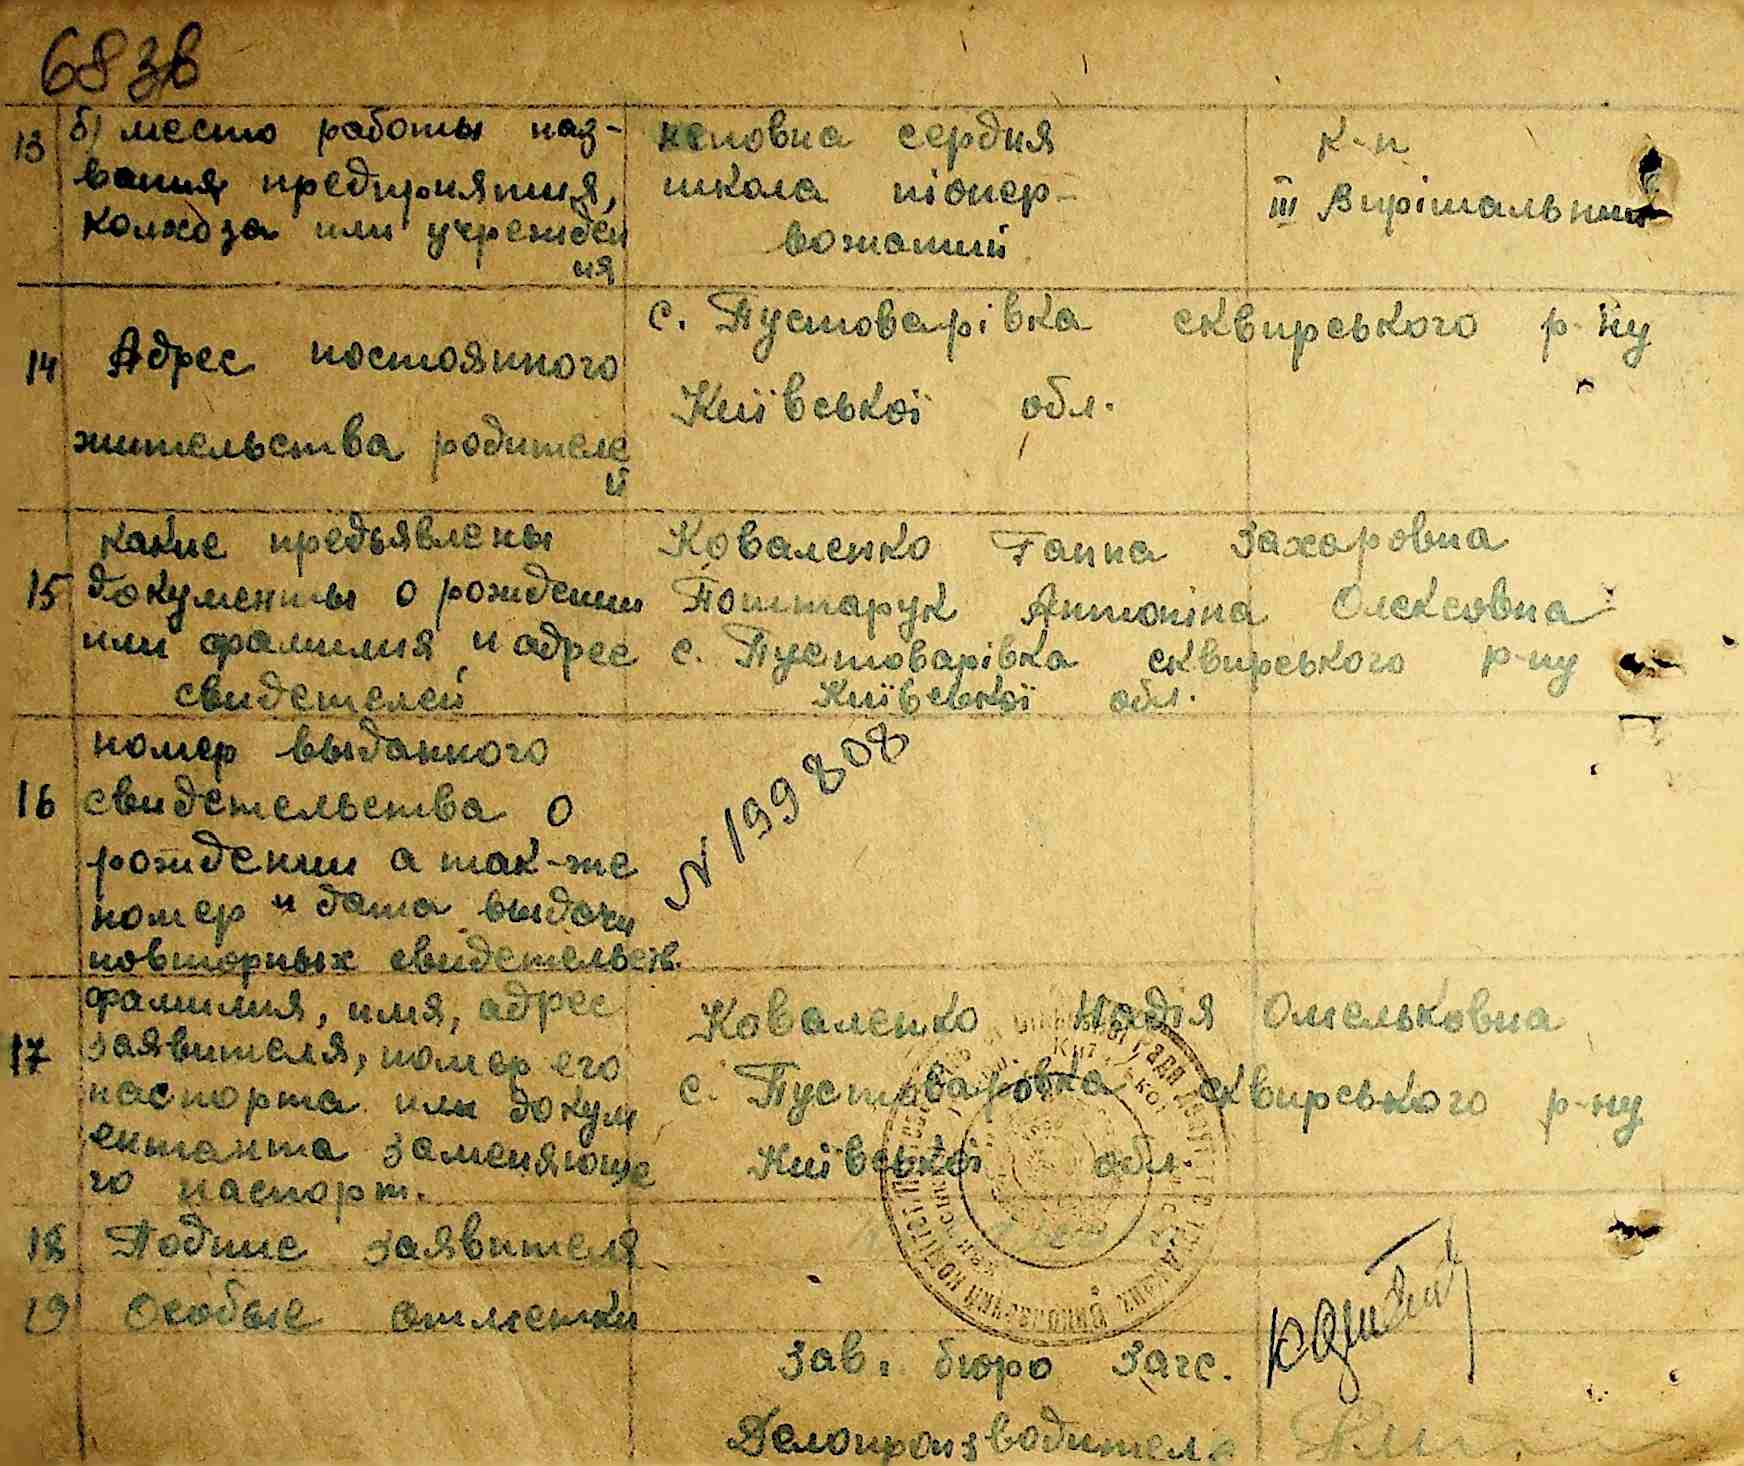 68 зв
13 б) место работы наз-
вания предприятия,
колхоза или учрежден
ия
неповна сердня
школа піонер-
вожатий
к-п
ІІІ Вирішальний
14 Адрес постоянного
жительства родителе
й
с. Пустоварівка сквирського р-ну
Київської обл.
15 какие предъявлены
документы о рождении
или фамилия и адрес
свидетелей
Коваленко Ганна Захаровна
Поштарук Антоніна Олексовна
с. Пустоварівка сквирського р-ну
Київської обл.
16 номер выданного
свидетельства о
рождении а так-же
номер и дата выдачи
повторных свидетельств.
N 199808
17 фамилия, имя, адрес
заявителя, номер его
паспорта или докум
ентанта заменяюще
го паспорт.
Коваленко Надія Омельковна
с. Пустоваровка сквирського р-ну
Київської обл.
18 Подпис заявителя
19 Особые отметки
Зав. бюро Загс.
Делопроизводитель